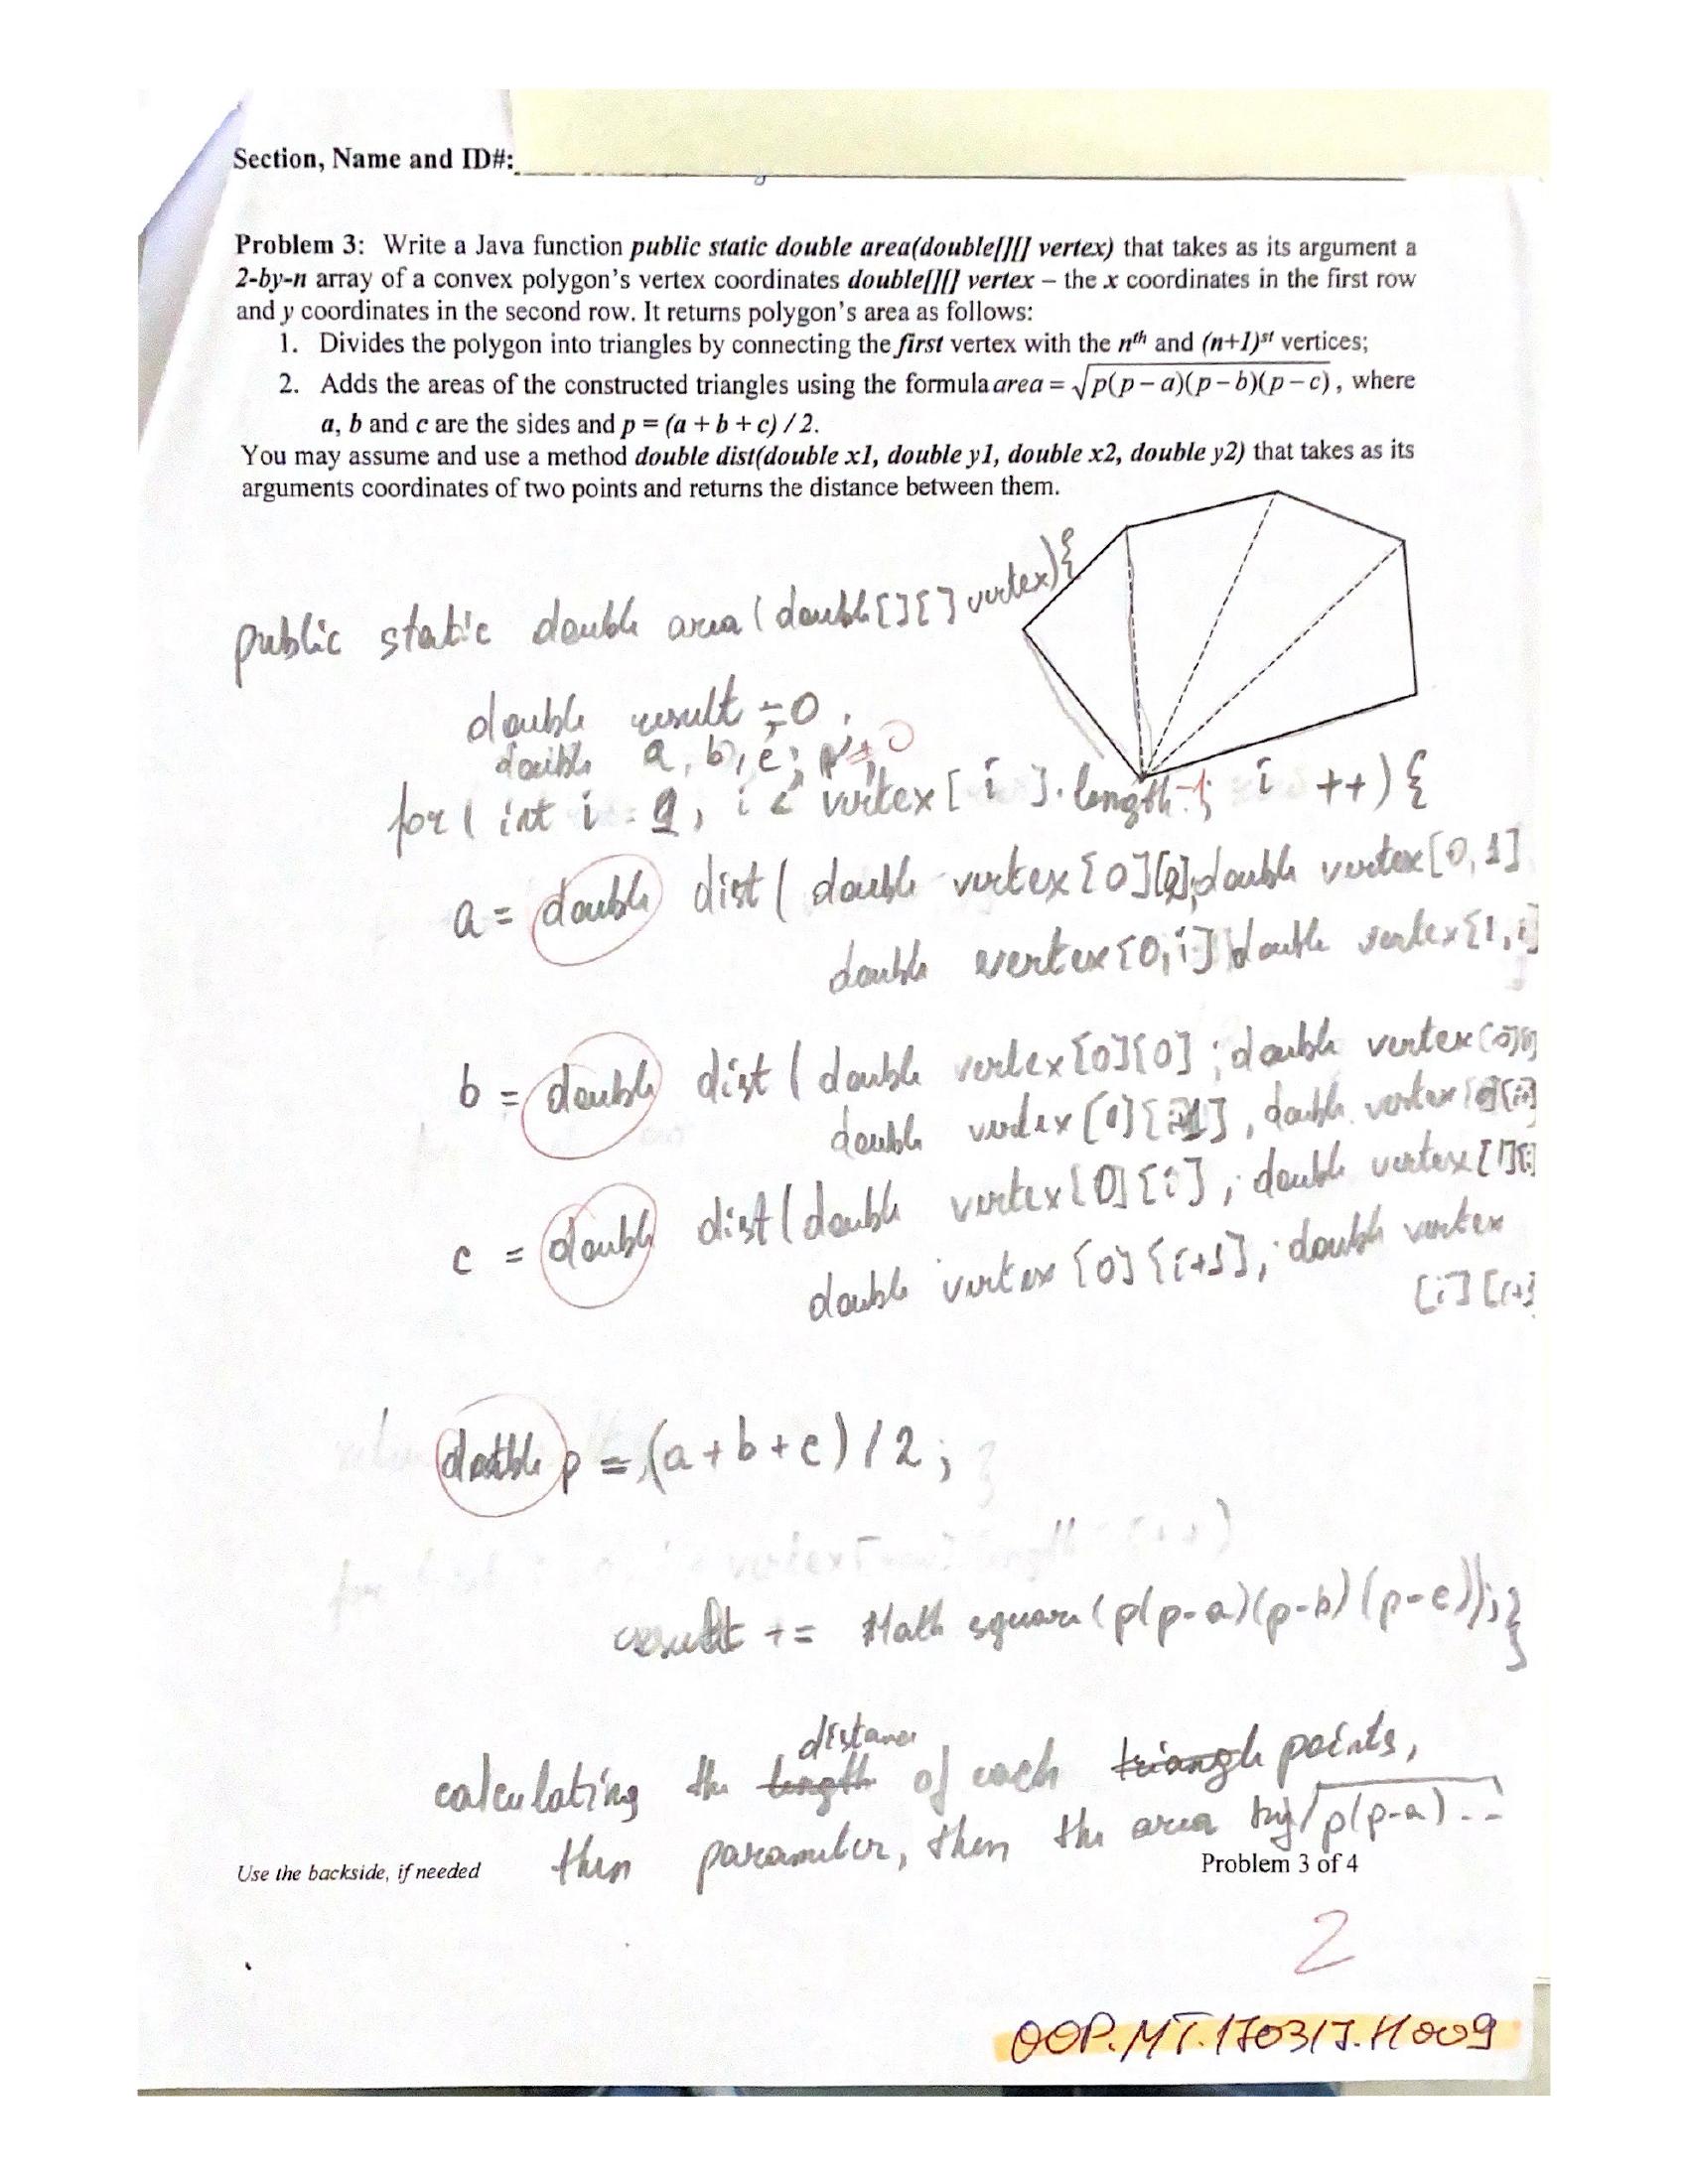 Section, Name and ID#:
Problem 3: Write a Java function public static double area(double[][] vertex) that takes as its argument a
2-by-n array of a convex polygon's vertex coordinates double[][] vertex – the x coordinates in the first row
and y coordinates in the second row. It returns polygon's area as follows:
1. Divides the polygon into triangles by connecting the first vertex with the nth and (n+1)st vertices;
2. Adds the areas of the constructed triangles using the formula area = √p(p − a)(p − b)(p − c), where
a, b and c are the sides and p = (a + b + c) / 2.
You may assume and use a method double dist(double x1, double y1, double x2, double y2) that takes as its
arguments coordinates of two points and returns the distance between them.
public static double area (double[][] vertex){
double result = 0;
double a, b, c;
for ( int i = 1, i < vertex[ i ].length-1; i ++) {
a = double dist ( double vertex[0][0], double vertex[0,1]
double vertex[0,i] double vertex[1,i]
b = double dist ( double vertex[0][0]; double vertex[0][0]
double vertex [0][i+1], double vertex
c = double dist ( double vertex[0][i], double vertex[1][i]
double vertex [0][i+1], double vertex
[i][i+1
double p = (a+b+c) / 2;
result += Math square ( p(p-a)(p-b)(p-c));}
distance
calculating the length of each triangle points,
then parameter, then the area by √p(p-a)...
Use the backside, if needed
Problem 3 of 4
2
OOP.MT.170317.H009